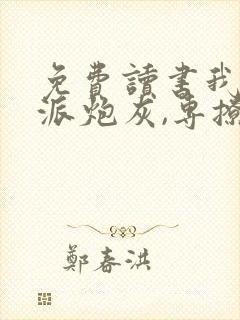 免費讀書我
派炮灰,專撩
鄭春洪